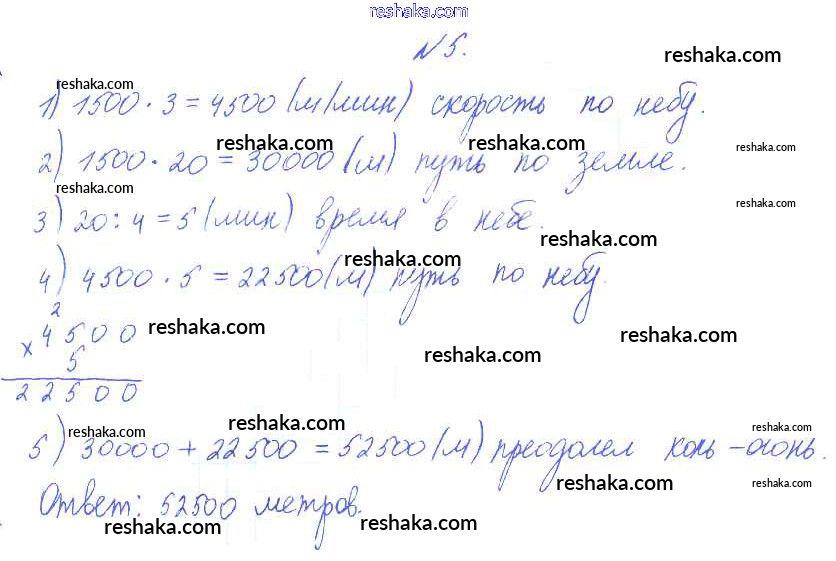 reshaka.com
N 5.
reshaka.com
reshaka.com
1) 1500 · 3 = 4500 (м/мин) скорость по небу.
reshaka.com reshaka.com
2) 1500 · 20 = 30000 (м) путь по земле.
reshaka.com reshaka.com
3) 20 : 4 = 5 (мин) время в небе.
reshaka.com
reshaka.com
4) 4500 · 5 = 22500 (м) путь по небу.
2
× 4500 reshaka.com reshaka.com
5 reshaka.com
22500
reshaka.com reshaka.com reshaka.com
5) 30000 + 22500 = 52500 (м) преодолел конь-огонь.
reshaka.com reshaka.com
Ответ: 52500 метров.
reshaka.com reshaka.com